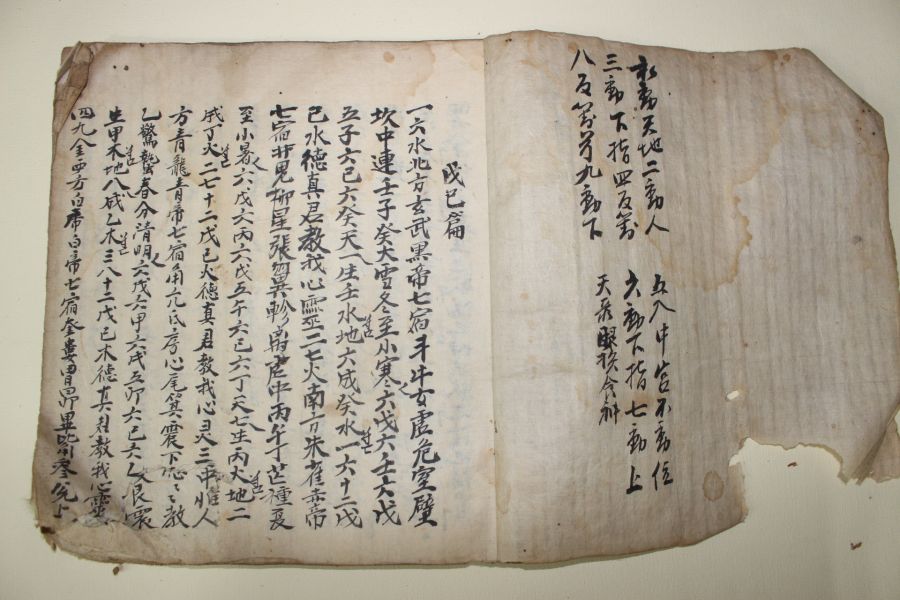 初動天地二動人 五入中宮不動位
三動下指四反對 六動下指七動上
八反對号九動下 天羅照換令斜
戊巳篇
一六水北方玄武黑帝七宿斗牛女虛危室壁
坎中連壬子癸大雪冬至小寒六戊六壬六戊
五子六巳六癸天一生壬水地六成癸水一六十二戊
巳水德真君教我心靈二七火南方朱雀赤帝
七宿井鬼柳星張翼軫離虛中丙午丁芒種夏
至小暑六戊六丙六戊五午六巳六丁天七生丙火地二
成丁火二七十二戊巳火德真君教我心灵三申惟人
方青龍青帝七宿角亢氐房心尾箕震下 教
乙驚蟄春分清明六戊六甲六戊五卯六巳六乙艮震
生甲木地八成乙木三八十二戊巳木德真君教我心靈
四九金西方白帝白帝七宿奎婁胃昴畢觜參兌上